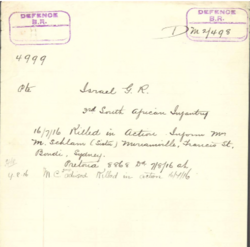 DEFENCE
B.R.
DEFENCE
B.R.
D M 2/498
4999
Pte Israel G. R.
3rd South African Infantry
16/7/16 Killed in Action Inform Mrs
M. Schlam (Sister) Francis St,
Bondi. Sydney.
Pretoria 8868 7/8/16
Killed in action